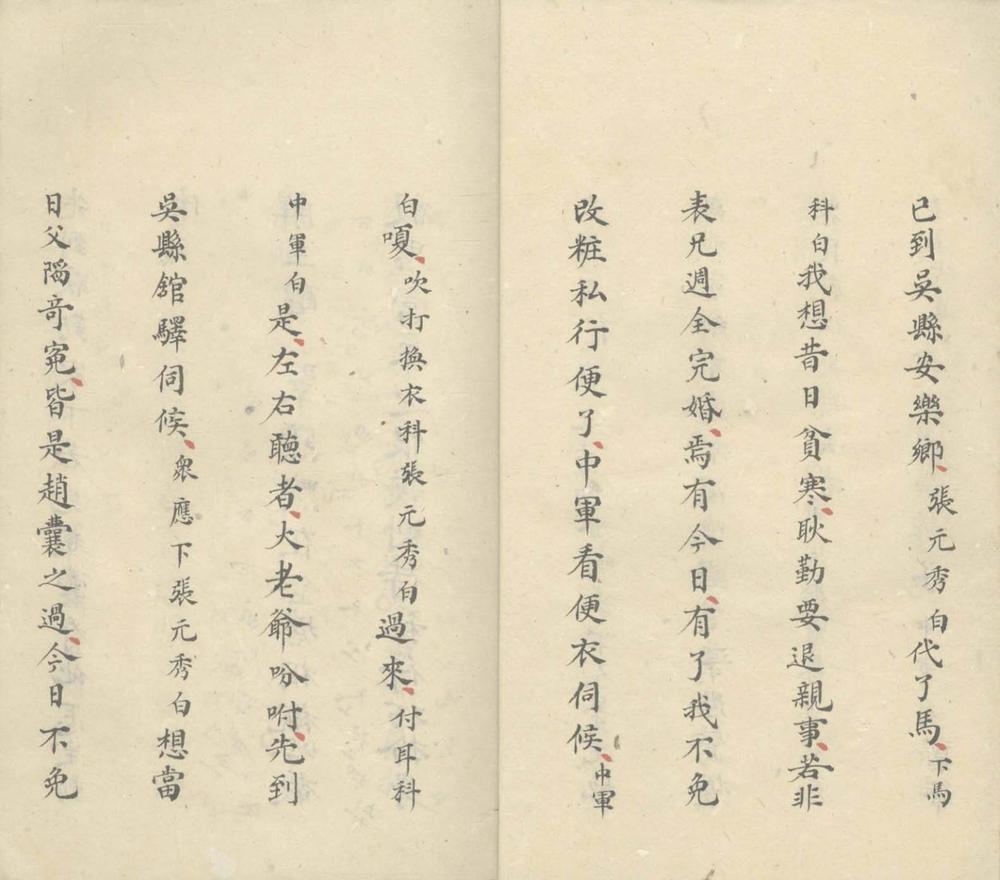 已到吳縣安樂鄉、張元秀白代了馬、下馬
科白我想昔日貧寒、耿勤要退親事、若非
表兄週全完婚、焉有今日、有了我不免
改粧私行便了、中軍看便衣伺候、中軍
白嗄、吹打換衣科張元秀白過來、付耳科
中軍白是、左右聽者、大老爺吩咐、先到
吳縣舘驛伺候、衆應下張元秀白想當
日父陷竒寃、皆是趙囊之過、今日不免